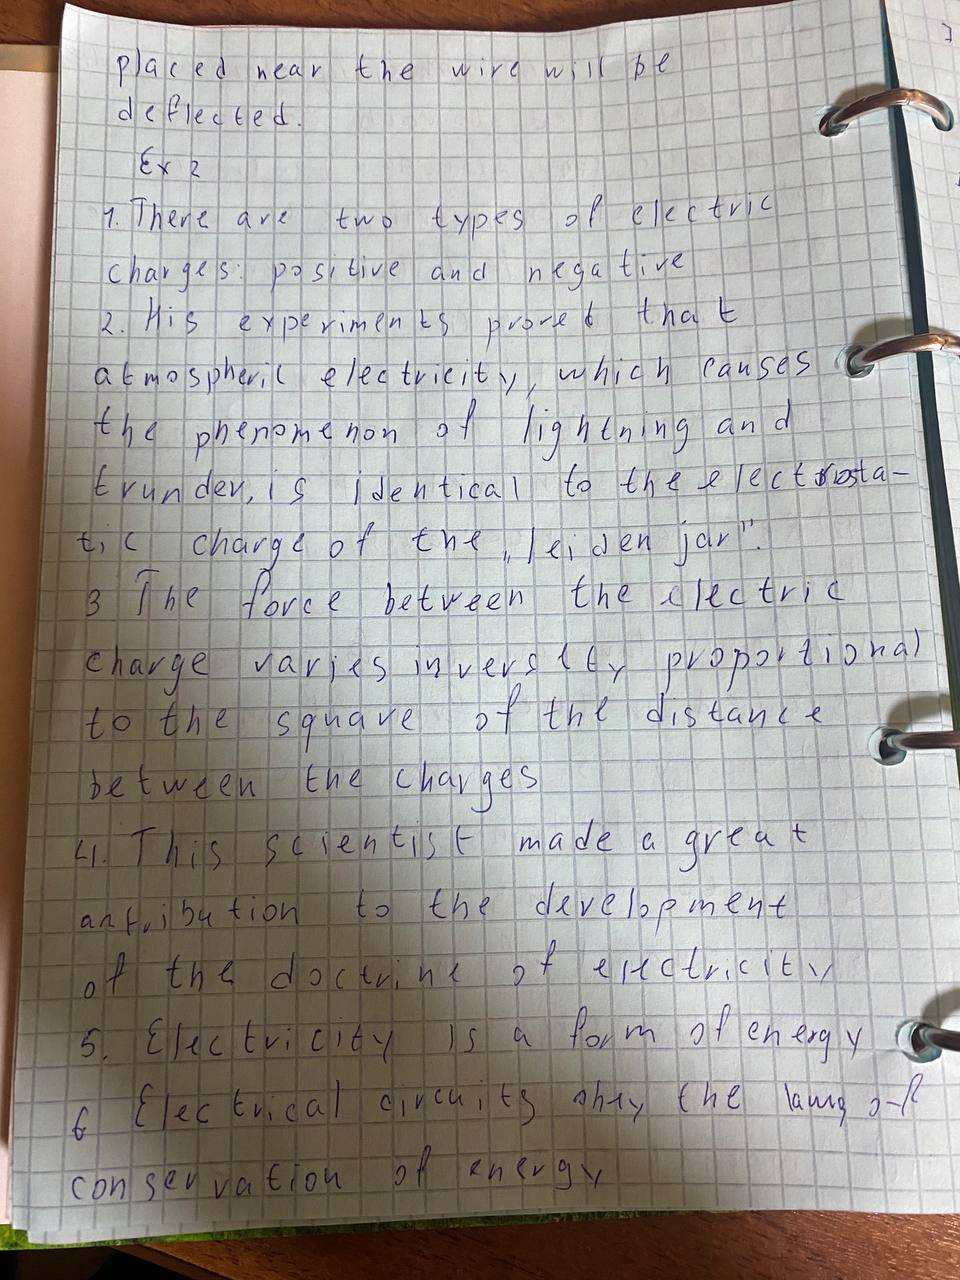 placed near the wire will be
deflected.
Ex 2
1. There are two types of electric
charges: positive and negative
2. His experiments proved that
atmospheric electricity, which causes
the phenomenon of lightning and
trunder, is identical to the electrosta-
tic charge of the „leiden jar".
3 The force between the electric
charge varies inversity proportional
to the square of the distance
between the charges
4. This scientist made a great
to the development
of the doctrine of electricity
5. Electricity is a form of energy
6 Electrical circuits obey the laws of
conservation of energy